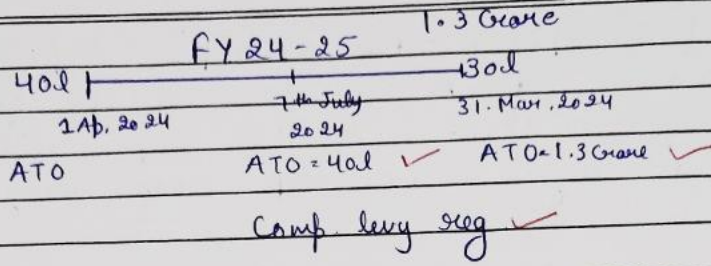 1.3 Crore
FY 24-25
40l 130l
1 Ap. 2024 7th July 2024 31. Mar. 2024
ATO ATO = 40l ATO = 1.3 Crore
Comp. levy reg